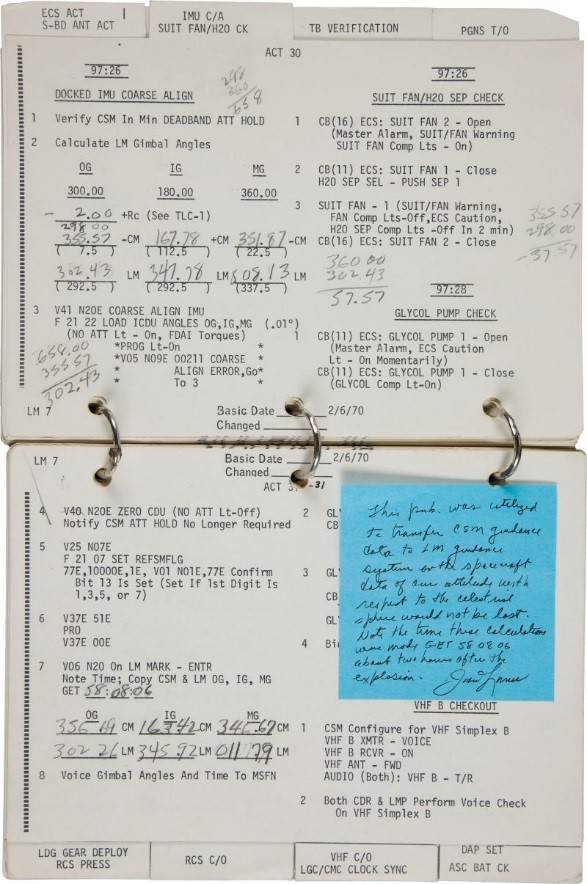 ECS ACT
S-BD ANT ACT
IMU C/A
SUIT FAN/H2O CK
TB VERIFICATION
PGNS T/O
ACT 30
97:26
DOCKED IMU COARSE ALIGN
298
360
658
1 Verify CSM In Min DEADBAND ATT HOLD
2 Calculate LM Gimbal Angles
OG IG MG
300.00 180.00 360.00
- 2.00 +Rc (See TLC-1)
298 00
355.57 -CM 167.78 +CM 351.87 -CM
( 7.5 ) (112.5 ) ( 22.5 )
302.43 LM 347.78 LM 608.13 LM
(292.5 ) (292.5 ) (337.5 )
3 V41 N20E COARSE ALIGN IMU
F 21 22 LOAD ICDU ANGLES OG,IG,MG (.01°)
(NO ATT Lt - On, FDAI Torques)
*PROG Lt-On *
*V05 N09E 00211 COARSE *
* ALIGN ERROR,Go*
* To 3 *
658.00
355.57
302.43
97:26
SUIT FAN/H2O SEP CHECK
1 CB(16) ECS: SUIT FAN 2 - Open
(Master Alarm, SUIT/FAN Warning
SUIT FAN Comp Lts - On)
2 CB(11) ECS: SUIT FAN 1 - Close
H2O SEP SEL - PUSH SEP 1
3 SUIT FAN - 1 (SUIT/FAN Warning,
FAN Comp Lts-Off,ECS Caution,
H2O SEP Comp Lts -Off In 2 min)
CB(16) ECS: SUIT FAN 2 - Close
355 57
298.00
- 57 57
360.00
302.43
57.57
97:28
GLYCOL PUMP CHECK
1 CB(11) ECS: GLYCOL PUMP 1 - Open
(Master Alarm, ECS Caution
Lt - On Momentarily)
CB(11) ECS: GLYCOL PUMP 1 - Close
(GLYCOL Comp Lt-On)
LM 7
Basic Date 2/6/70
Changed
LM 7
Basic Date 2/6/70
Changed
ACT 3 -31
4 V40 N20E ZERO CDU (NO ATT Lt-Off)
Notify CSM ATT HOLD No Longer Required
5 V25 N07E
F 21 07 SET REFSMFLG
77E,10000E,1E, V01 N01E,77E Confirm
Bit 13 Is Set (Set If 1st Digit Is
1,3,5, or 7)
6 V37E 51E
PRO
V37E 00E
7 V06 N20 On LM MARK - ENTR
Note Time; Copy CSM & LM OG, IG, MG
GET 58:08:06
OG IG MG
356 69 CM 163 42 CM 346.67 CM
302 26 LM 345 92 LM 011 79 LM
8 Voice Gimbal Angles And Time To MSFN
2 GL
CB
3 GL
CB
GL
4 Bi
This pub. was utilized
to transfer CSM guidance
data to LM guidance
system on the spacecraft
data of our attitude with
respect to the celestial
sphere would not be lost.
Note the time these calculations
were made GET 58 08 06
about two hours after the
explosion.
VHF B CHECKOUT
1 CSM Configure for VHF Simplex B
VHF B XMTR - VOICE
VHF B RCVR - ON
VHF ANT - FWD
AUDIO (Both): VHF B - T/R
2 Both CDR & LMP Perform Voice Check
On VHF Simplex B
LDG GEAR DEPLOY
RCS PRESS
RCS C/O
VHF C/O
LGC/CMC CLOCK SYNC
DAP SET
ASC BAT CK